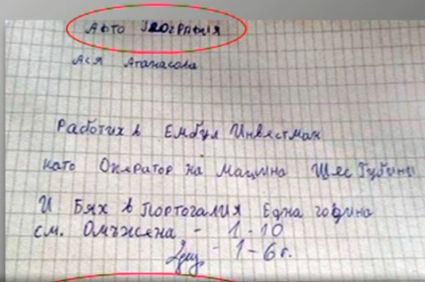 Авто География
Ася Атанасова
Работих в Ембул Инвестман
като Оператор на Машина Шес Губини
И Бях в Портогалия Една година
см. Омъжена - 1-10
- 1-6г.